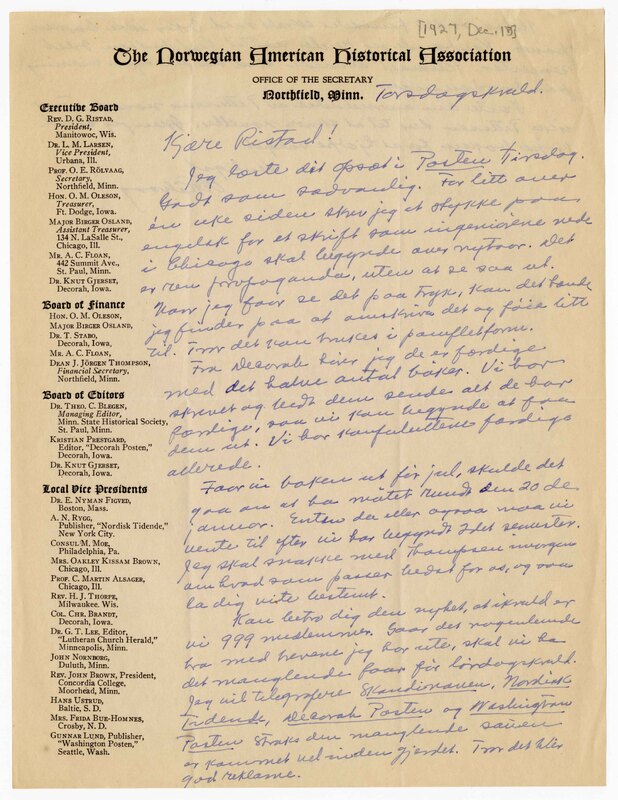 [1927, Dec. 15]
The Norwegian American Historical Association
OFFICE OF THE SECRETARY
Northfield, Minn.
Torsdagskveld.
Executive Board
REV. D. G. RISTAD,
President,
Manitowoc, Wis.
DR. L. M. LARSEN,
Vice President,
Urbana, Ill.
PROF. O. E. RÖLVAAG,
Secretary,
Northfield, Minn.
HON. O. M. OLESON,
Treasurer,
Ft. Dodge, Iowa.
MAJOR BIRGER OSLAND,
Assistant Treasurer,
134 N. LaSalle St.,
Chicago, Ill.
MR. A. C. FLOAN,
442 Summit Ave.,
St. Paul, Minn.
DR. KNUT GJERSET,
Decorah, Iowa.
Board of Finance
HON. O. M. OLESON,
MAJOR BIRGER OSLAND,
DR. T. STABO,
Decorah, Iowa.
MR. A. C. FLOAN,
DEAN J. JÖRGEN THOMPSON,
Financial Secretary,
Northfield, Minn.
Board of Editors
DR. THEO. C. BLEGEN,
Managing Editor,
Minn. State Historical Society,
St. Paul, Minn.
KRISTIAN PRESTGARD,
Editor, "Decorah Posten,"
Decorah, Iowa.
DR. KNUT GJERSET,
Decorah, Iowa.
Local Vice Presidents
DR. E. NYMAN FIGVED,
Boston, Mass.
A. N. RYGG,
Publisher, "Nordisk Tidende,"
New York City.
CONSUL M. MOE,
Philadelphia, Pa.
MRS. OAKLEY KISSAM BROWN,
Chicago, Ill.
PROF. C. MARTIN ALSAGER,
Chicago, Ill.
REV. H. J. THORPE,
Milwaukee, Wis.
COL. CHR. BRANDT,
Decorah, Iowa.
DR. G. T. LEE, Editor,
"Lutheran Church Herald,"
Minneapolis, Minn.
JOHN NORNBORG,
Duluth, Minn.
REV. JOHN BROWN, President,
Concordia College,
Moorhead, Minn.
HANS USTRUD,
Baltic, S. D.
MRS. FRIDA BUE-HOMNES,
Crosby, N. D.
GUNNAR LUND, Publisher,
"Washington Posten,"
Seattle, Wash.
Kjære Ristad!
Jeg læste dit opsæt i Posten Tirsdag.
Godt som sædvanlig. For litt over
én uke siden skrev jeg et stykke paa
engelsk for et skrift som ingeniørene nede
i Chicago skal begynde over nytaar. Det
er ren propaganda, uten at se saa ut.
Naar jeg faar se det paa tryk, kan det hænde
jeg finder paa at omskrive det og føie litt
til. Tror det kan brukes i pamfletform.
Fra Decorah hører jeg de er færdige
med det halve antal bøker. Vi har
skrevet og bedt dem sendes alt de har
færdige, saa vi kan begynde at faa
dem ut. Vi har konvoluttene færdige
allerede.
Faar vi boken ut før jul, skulde det
gaa an at ha møtet rundt den 20 de
januar. Enten da eller ogsaa maa vi
vente til efter vi har begyndt 2det semester.
Jeg skal snakke med Thompson imorgen
om hvad som passer bedst for os, og saa
la dig vite bestemt.
Kan betro dig den nyhet, at ikveld er
vi 999 medlemmer. Gaar det nogenlunde
bra med brevene jeg har ute, skal vi ha
det manglende faar før lørdagskveld.
Jeg vil telegrafere Skandinaven, Nordisk
Tidende, Decorah Posten og Washington
Posten straks den manglende sauen
er kommet vel inden gjerdet. Tror det blir
god reklame.